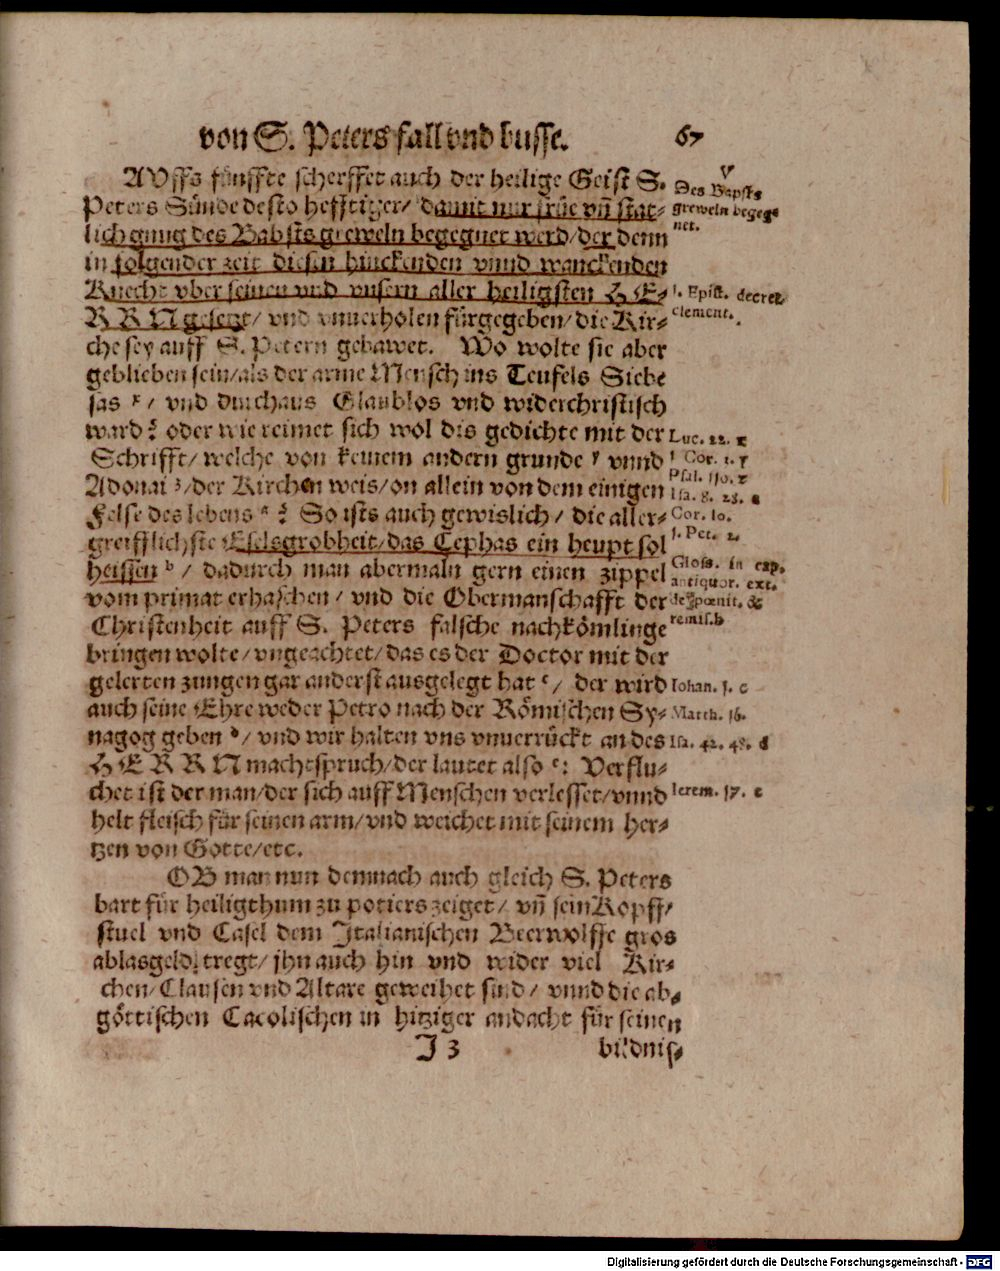 von S. Peters fall vnd busse. 67
AVffs fünffte scherffet auch der heilige Geist S.
Peters Sünde desto hefftiger/ damit nur früe vn̄ stat-
lich gnug des Babsts greweln begegnet werd/der denn
in folgender zeit diesen hinckenden vnnd wanckenden
Knecht vber seinen vnd vnsern aller heiligsten HE-
RRN gesetzt/ vnd vnuerholen fürgegeben/die Kir-
che sey auff S. Petern gebawet. Wo wolte sie aber
geblieben sein/als der arme Mensch ins Teufels Siebe
sas x/ vnd durchaus Glaublos vnd widerchristisch
ward? oder wie reimet sich wol dis gedichte mit der
Schrifft/ welche von keinem andern grunde y vnnd
Adonai z/der Kirchen weis/on allein von dem einigen
Felse des lebens a? So ists auch gewislich/ die aller-
greifflichste Eselsgrobheit/das Cephas ein heupt sol
heissen b/ dadurch man abermaln gern einen zippel
vom primat erhaschen/ vnd die Obermanschafft der
Christenheit auff S. Peters falsche nachkömlinge
bringen wolte/vngeachtet/das es der Doctor mit der
gelerten zungen gar anderst ausgelegt hat c/ der wird
auch seine Ehre weder Petro nach der Römischen Sy-
nagog geben d/ vnd wir halten vns vnuerrückt an des
HERRN machtspruch/der lautet also e: Verflu-
chet ist der man/der sich auff Menschen verlesset/vnnd
helt fleisch für seinen arm/vnd weichet mit seinem her-
tzen von Gotte/etc.
OB man nun demnach auch gleich S. Peters
bart für heiligthum zu potiers zeiget/ vn̄ sein Kopff/
stuel vnd Casel dem Italianischen Beerwolffe gros
ablasgeld tregt/ jhn auch hin vnd wider viel Kir-
chen/Clausen vnd Altare geweihet sind/ vnnd die ab-
göttischen Cacolischen in hitziger andacht für seinen
J 3 bildnis-
V
Des Bapsts
greweln begeg-
net.
1. Epist. decret.
clement.
Luc. 22. x
1 Cor. 1. y
Psal. 110. z
Isa. 8. 28. a
Cor. 10.
1. Pet. 2.
Gloss. in exp.
antiquor. ext.
de pœnit. &
remis. b
Iohan. 1. c
Matth. 16.
Isa. 42. 48. d
Ierem. 17. e
Digitalisierung gefördert durch die Deutsche Forschungsgemeinschaft - DFG